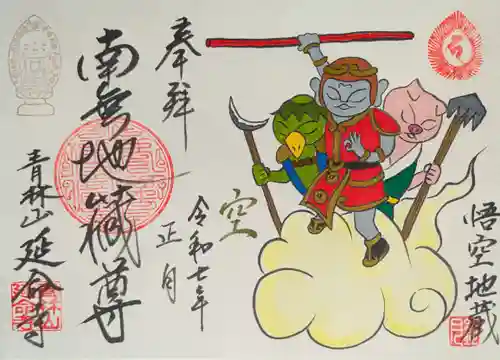 奉拝
南無地蔵尊
令和七年
正月
青林山延命寺
空
悟空地蔵